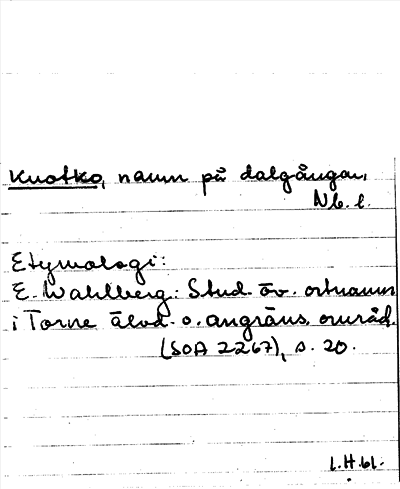 Kuotko, namn på dalgångar,
Nb. l.
Etymologi:
E. Wahlberg: Stud. öv. ortnamn
i Torne älvd. o. angräns. områd.
(SOA 2267), s. 20.
L.H.bl.